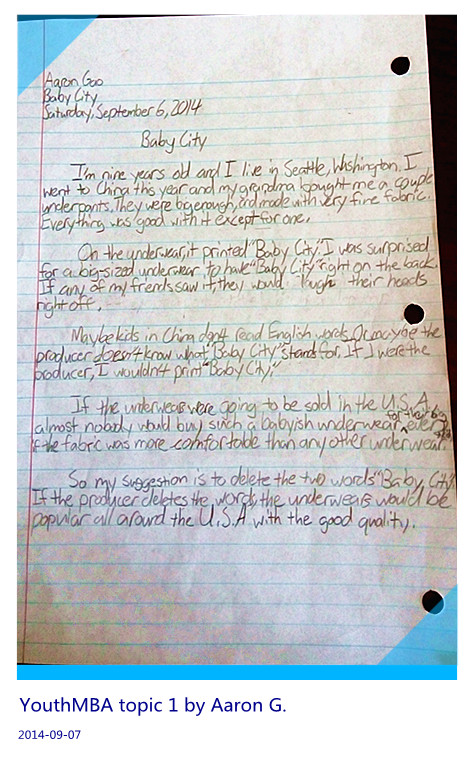 Aaron Gao
Baby City
Saturday, September 6, 2014
Baby City
I'm nine years old and I live in Seattle, Washington. I
went to China this year and my grandma bought me a couple
underpants. They were big enough, and made with very fine fabric.
Everything was good with it except for one.
On the underwear, it printed "Baby City". I was surprised
for a big-sized underwear to have "Baby City" right on the back.
If any of my friends saw it, they would laugh their heads
right off.
Maybe kids in China don't read English words. Or maybe the
producer doesn't know what "Baby City" stands for. If I were the
producer, I wouldn't print "Baby City."
If the underwears were going to be sold in the U.S.A,
almost nobody would buy such a babyish underwear for their big even
if the fabric was more comfortable than any other underwear.
So my suggestion is to delete the two words "Baby City".
If the producer deletes the words, the underwears would be
popular all around the U.S.A with the good quality.
YouthMBA topic 1 by Aaron G.
2014-09-07